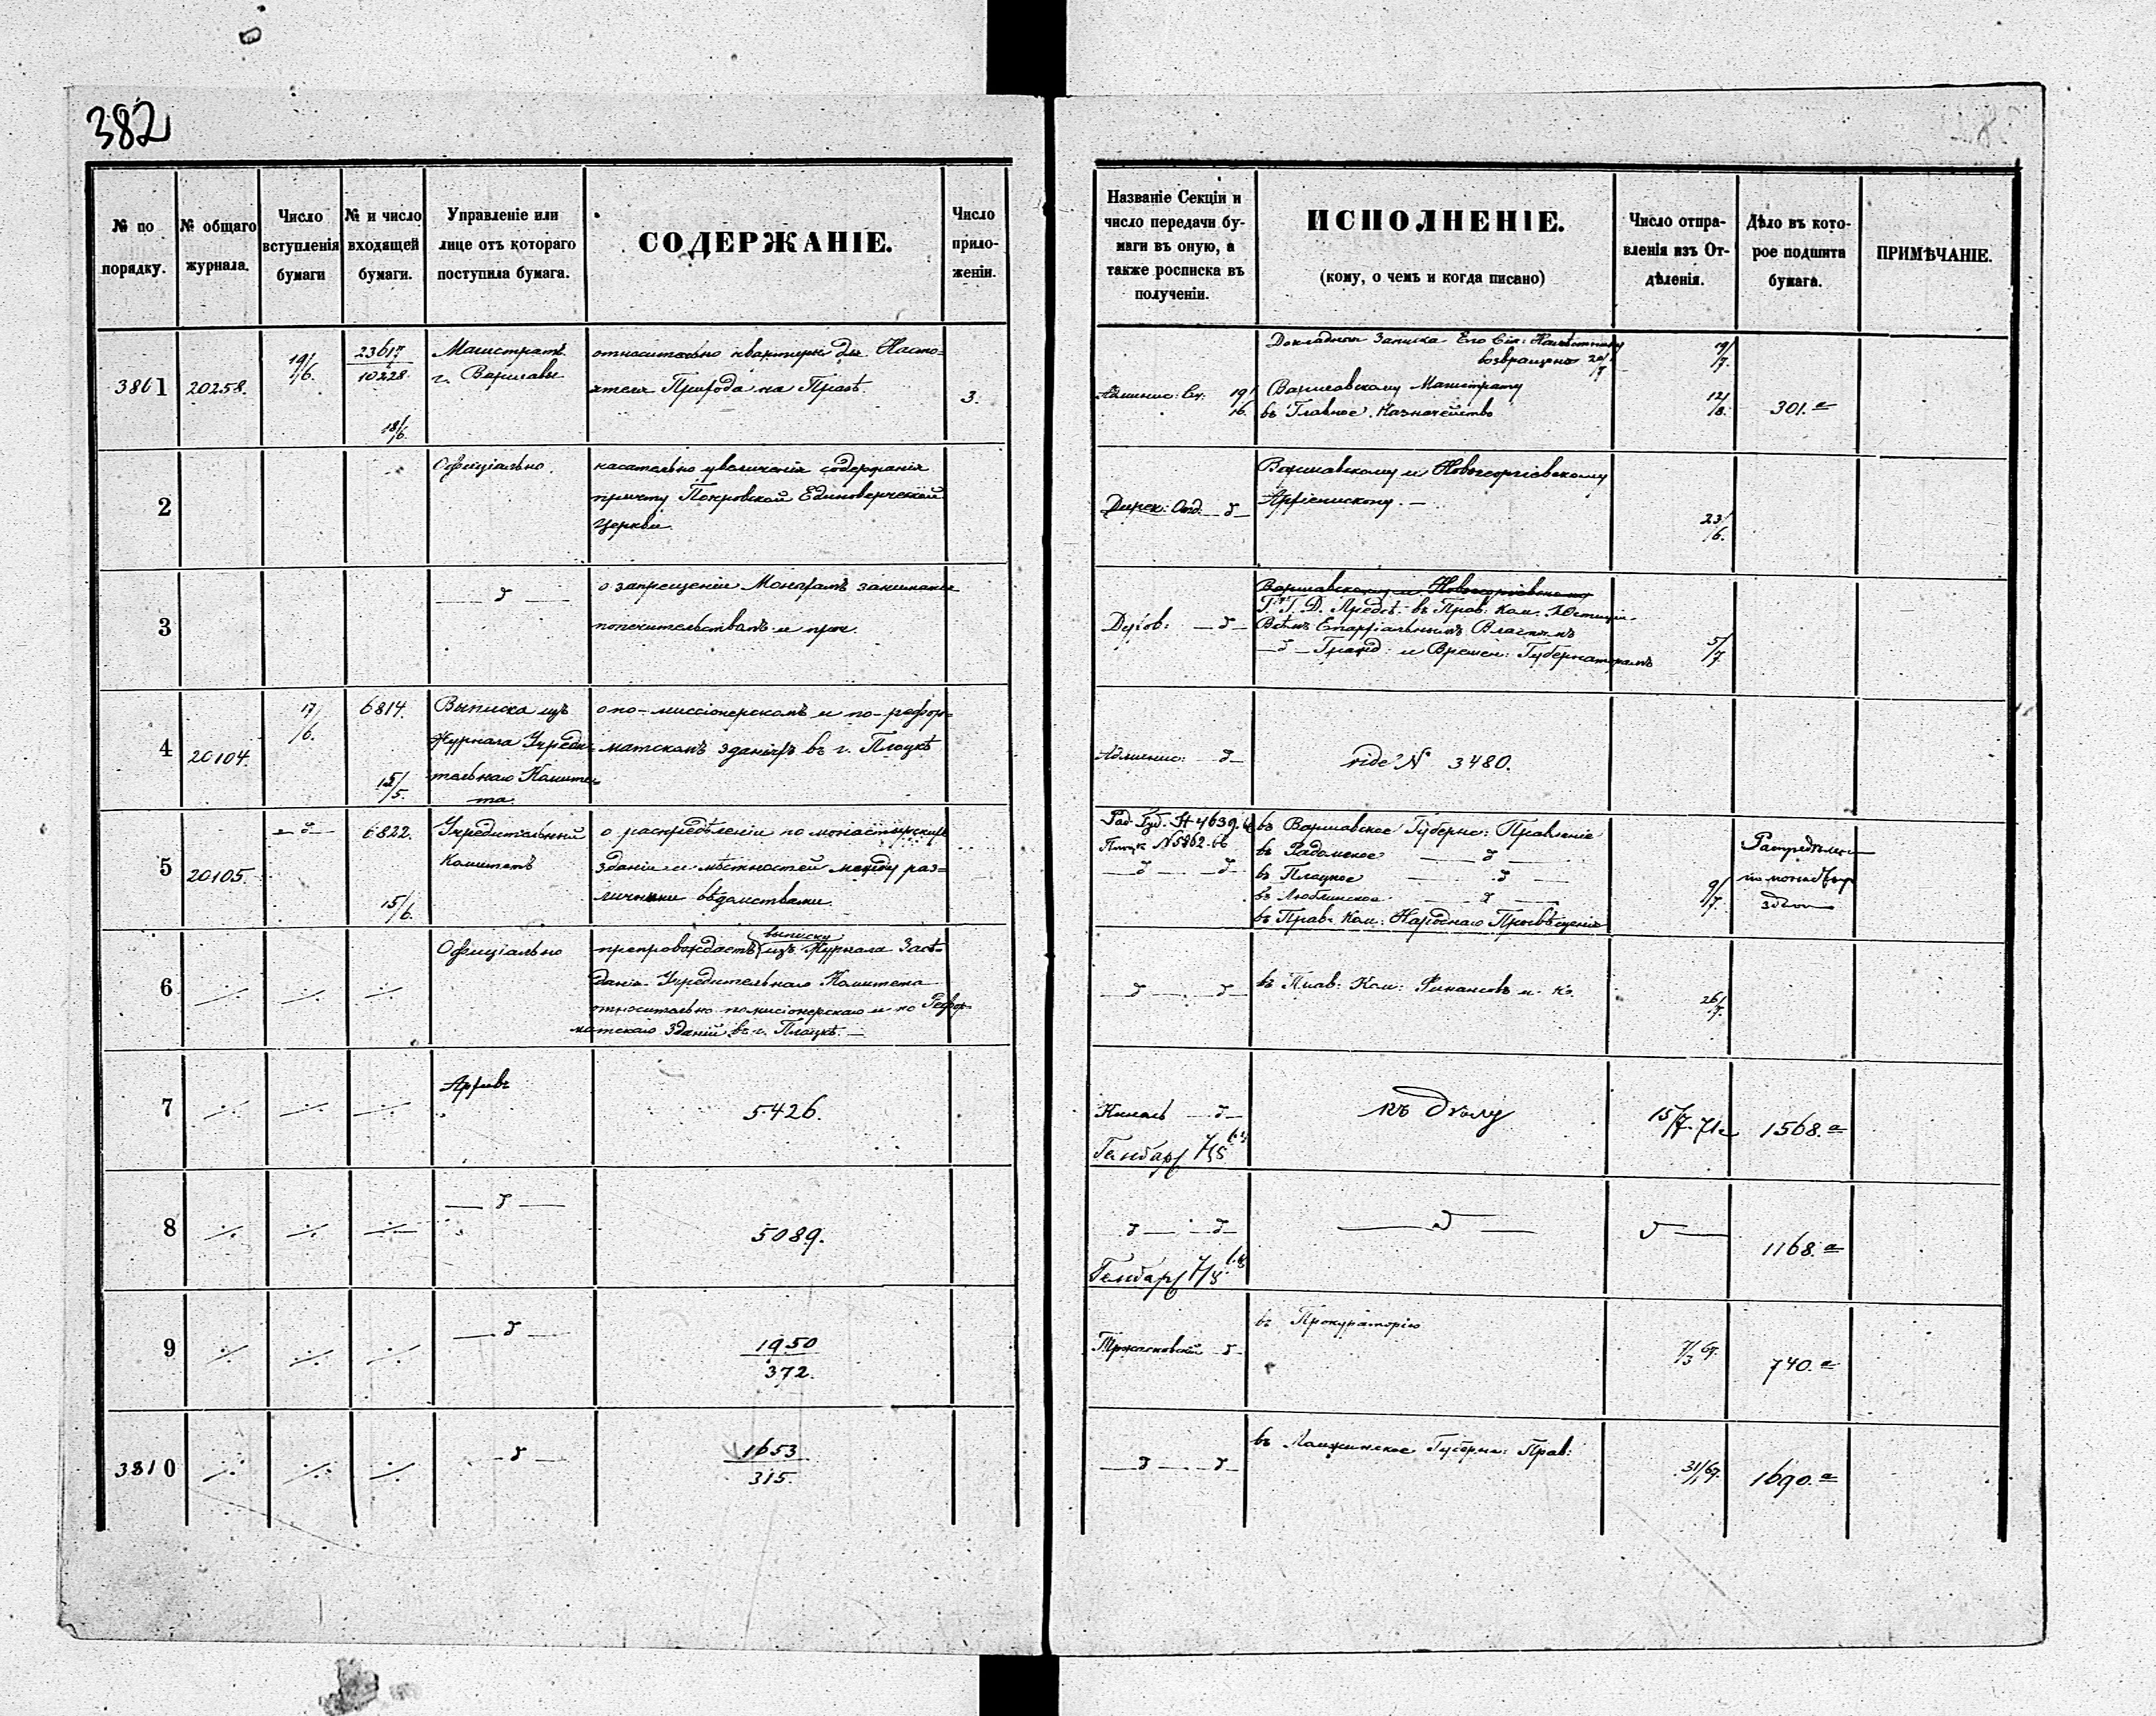 382
№ по порядку.
№ общаго журнала.
Число вступленія бумаги
№ и число входящей бумаги.
Управленіе или лице отъ котораго поступила бумага.
СОДЕРЖАНІЕ.
Число прило- женіи.
Названіе Секціи и число передачи бу- маги въ оную, а также росписка въ полученіи.
ИСПОЛНЕНІЕ.
(кому, о чемъ и когда писано)
Число отпра- вленія изъ От- дѣленія.
Дѣло въ кото- рое подшита бумага.
ПРИМѢЧАНІЕ.
3801
20258.
19/6.
23617
10228
18/6.
Магистратъ
г. Варшавы
относительно квартиры для Насто-
ятеля Прихода на Прагѣ.
3.
Админис: Ск: 19/
16.
Докладная Записка Его Сія: Намѣстнику
возвращено 20/7
Варшавскому Магистрату
въ Главное Казначейство
19/7.
12/8.
301.a
2
Офиціально.
касательно увеличенія содержанія
причту Покровской Единоверческой
Церкви.
Дирек: Отд. — д —
Варшавскому и Новогеоргіевскому
Архіепископу. —
23/6.
3
— д —
о запрещеніи Монахамъ заниматься
попечительствамъ и проч.
Духов: — д —
Варшавскому и Новогеоргіевскому
Г. Г. Д. Предсѣ: въ Прав: Ком. Юстиціи.
Всѣмъ Епархіальнымъ Властямъ
— д — Гражд: и Времен: Губернаторамъ
5/7
4
20104.
17/6.
6814.
15/5.
Выписка изъ
Журнала Учреди-
тельнаго Комите-
та.
о по-миссіонерскомъ и по-рефор-
матскомъ зданіяхъ въ г. Плоцкѣ
Админис: — д —
vide N 3480.
5
20105.
— д —
6822.
15/6.
Учредительный
Комитетъ
о распредѣленіи по монастырскихъ
зданіи и мѣстностей между раз-
личными вѣдомствами.
Рад. Губ. № 4639.
Плоцк N 5862.66
— д — — д —
въ Варшавское Губернс: Правленіе
въ Радомское — д —
въ Плоцкое — д —
въ Люблинское — д —
въ Прав: Ком: Народнаго Просвѣщенія
9/7.
Распредѣлен
по монастыр
здан
6
Офиціально
препровождаетъ выписку изъ Журнала Засѣ-
данія Учредительнаго Комитета
относительно помисіонерскаго и по Рефор-
матскаго Зданій въ г. Плоцкѣ. —
— д — — д —
въ Прав: Ком: Финансовъ и К.
26/7.
7
Архивъ
5426.
— д —
къ дѣлу
15/7. 71 г
1568.a
8
— д —
5089.
— д — — д —
— д —
д —
1168.a
9
— д —
1950
372.
— д —
въ Прокураторію
7/3 67.
740.a
3810
— д —
1653
315.
— д — — д —
въ Ломжинское Губерн: Прав:
31/1 67.
1690.a